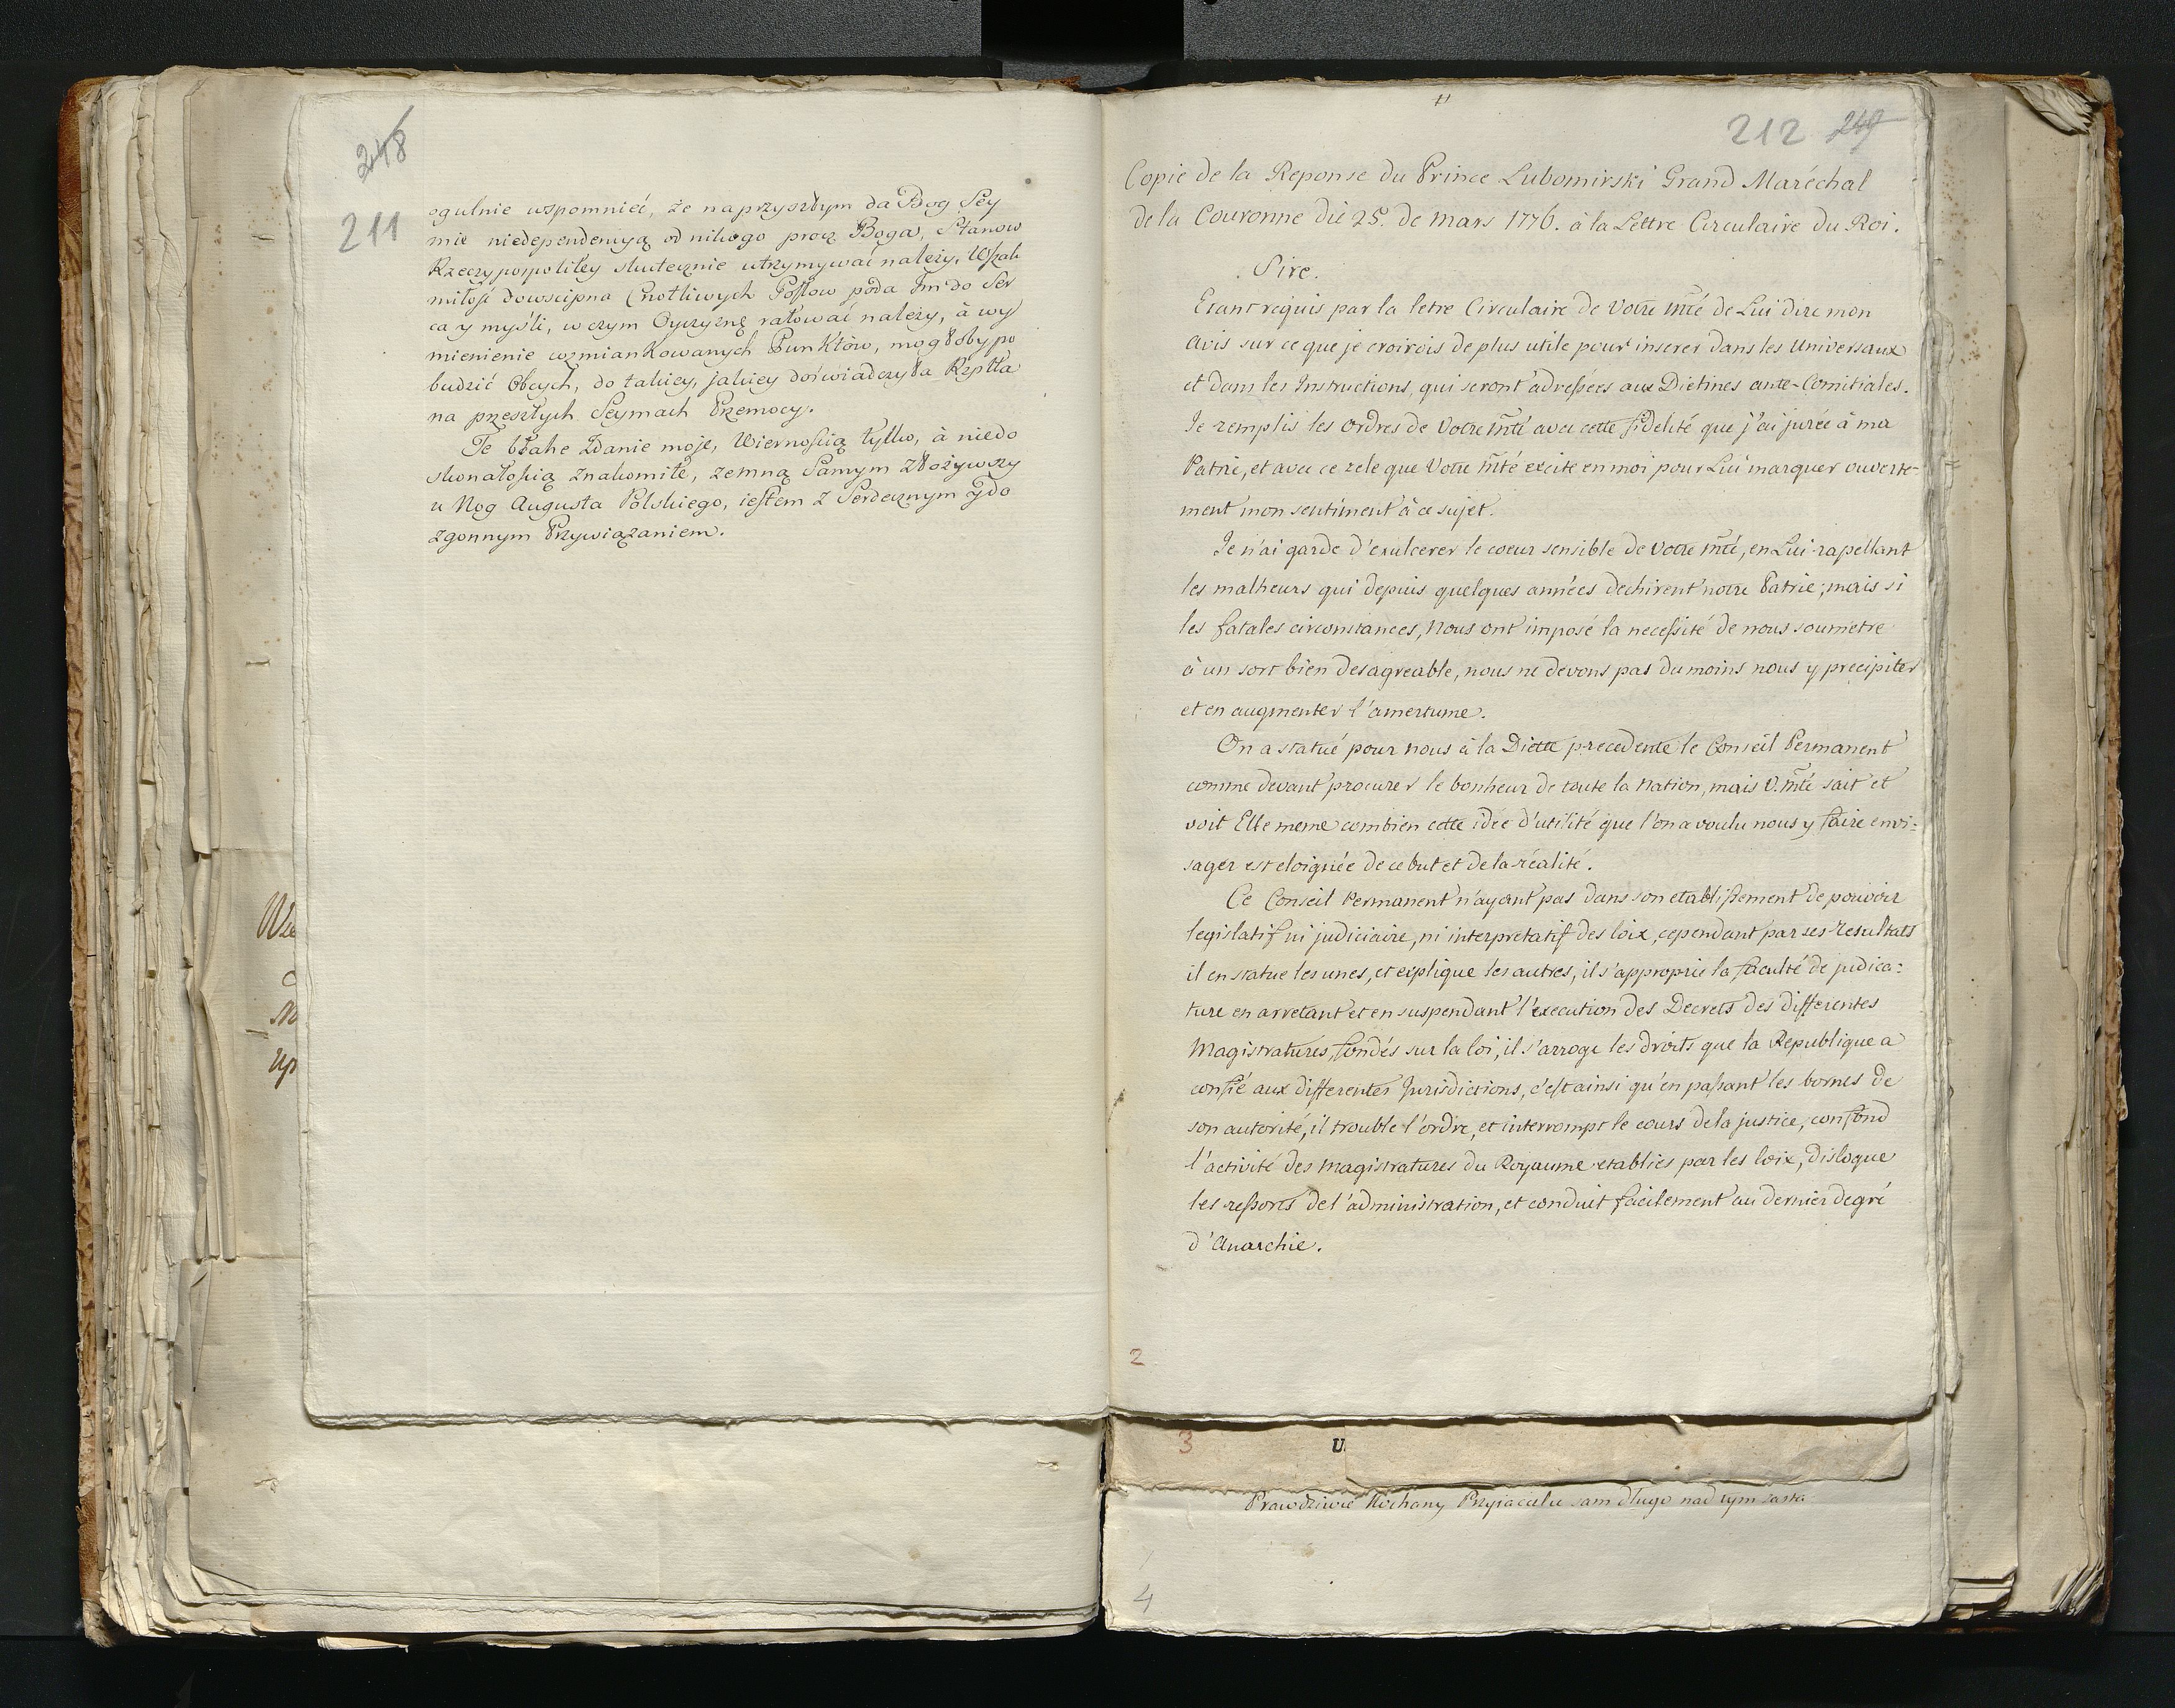 248
211
ogulnie wspomnieć, że naprzyszłym da Bog Sey
mie niedependencyą od nikogo procz Boga, Stanow
Rzeczypospolitey skutecznie utrzymywać należy. Wszak
miłość dowscipna Cnotliwych Posłow poda Im do Ser
ca y myśli, w czym Oyczyznę ratować należy, à wy
mienienie wzmiankowanych Punktów, mogłoby po
budzić Obcych, do takiey, jakiey doświadczyła Rzptta
na przeszłych Seymach Przemocy.
Te błahe Zdanie moje, Wiernością tylko, à niedo
skonałością znakomite, zemną Samym złożywszy
u Nog Augusta Polskiego, iestem z Serdecznym y do
zgonnym Przywiązaniem.
212 249
Copie de la Reponse du Prince Lubomirski Grand Maréchal
de la Couronne du 25. de Mars 1776. à la Lettre Circulaire du Roi.
Sire.
Etant requis par la letre Circulaire de Votre Mté de Lui dire mon
avis sur ce que je croirois de plus utile pour inserer dans les Universaux
et dans les Instructions, qui seront adressées aux Dietines ante-Comitiales.
Je remplis les ordres de Votre Mté avec cette fidelité que j'ai jurée à ma
Patrie, et avec ce zele que Votre Mté excite en moi pour Lui marquer ouverte-
ment mon sentiment à ce sujet.
Je n'ai garde d'exulcerer le coeur sensible de Votre Mté, en Lui rapellant
les malheurs qui depuis quelques années dechirent notre Patrie; mais si
les fatales circonstances, Nous ont imposé la necessité de nous soumetre
à un sort bien desagreable, nous ne devons pas du moins nous y precipiter
et en augmenter l'amertume.
On a statué pour nous à la Diette precedente le Conseil Permanent
comme devant procurer le bonheur de toute la Nation, mais V. Mté sait et
voit Elle meme combien cette idée d'utilité que l'on a voulu nous y faire envi=
sager est eloignée de ce but et de la réalité.
Ce Conseil Permanent n'ayant pas dans son etablissement de pouvoir
legislatif ni judiciaire, ni interpretatif des loix, cependant par ses Resultats
il en statue les unes, et explique les autres, il s'approprie la faculté de judica=
ture en arretant et en suspendant l'execution des Decrets des differentes
Magistratures, fondés sur la loi, il s'arroge les droits que la Republique a
confié aux differentes Jurisdictions, c'est ainsi qu'en passant les bornes de
son autorité, il trouble l'ordre, et interrompt le cours de la justice, confond
l'activité des Magistratures du Royaume etablies par les loix, disloque
les ressorts de l'administration, et conduit facilement au dernier degré
d'Anarchie.
2
3
U.
Prawdziwie Kochany Przyiacielu sam długo nad tym
4